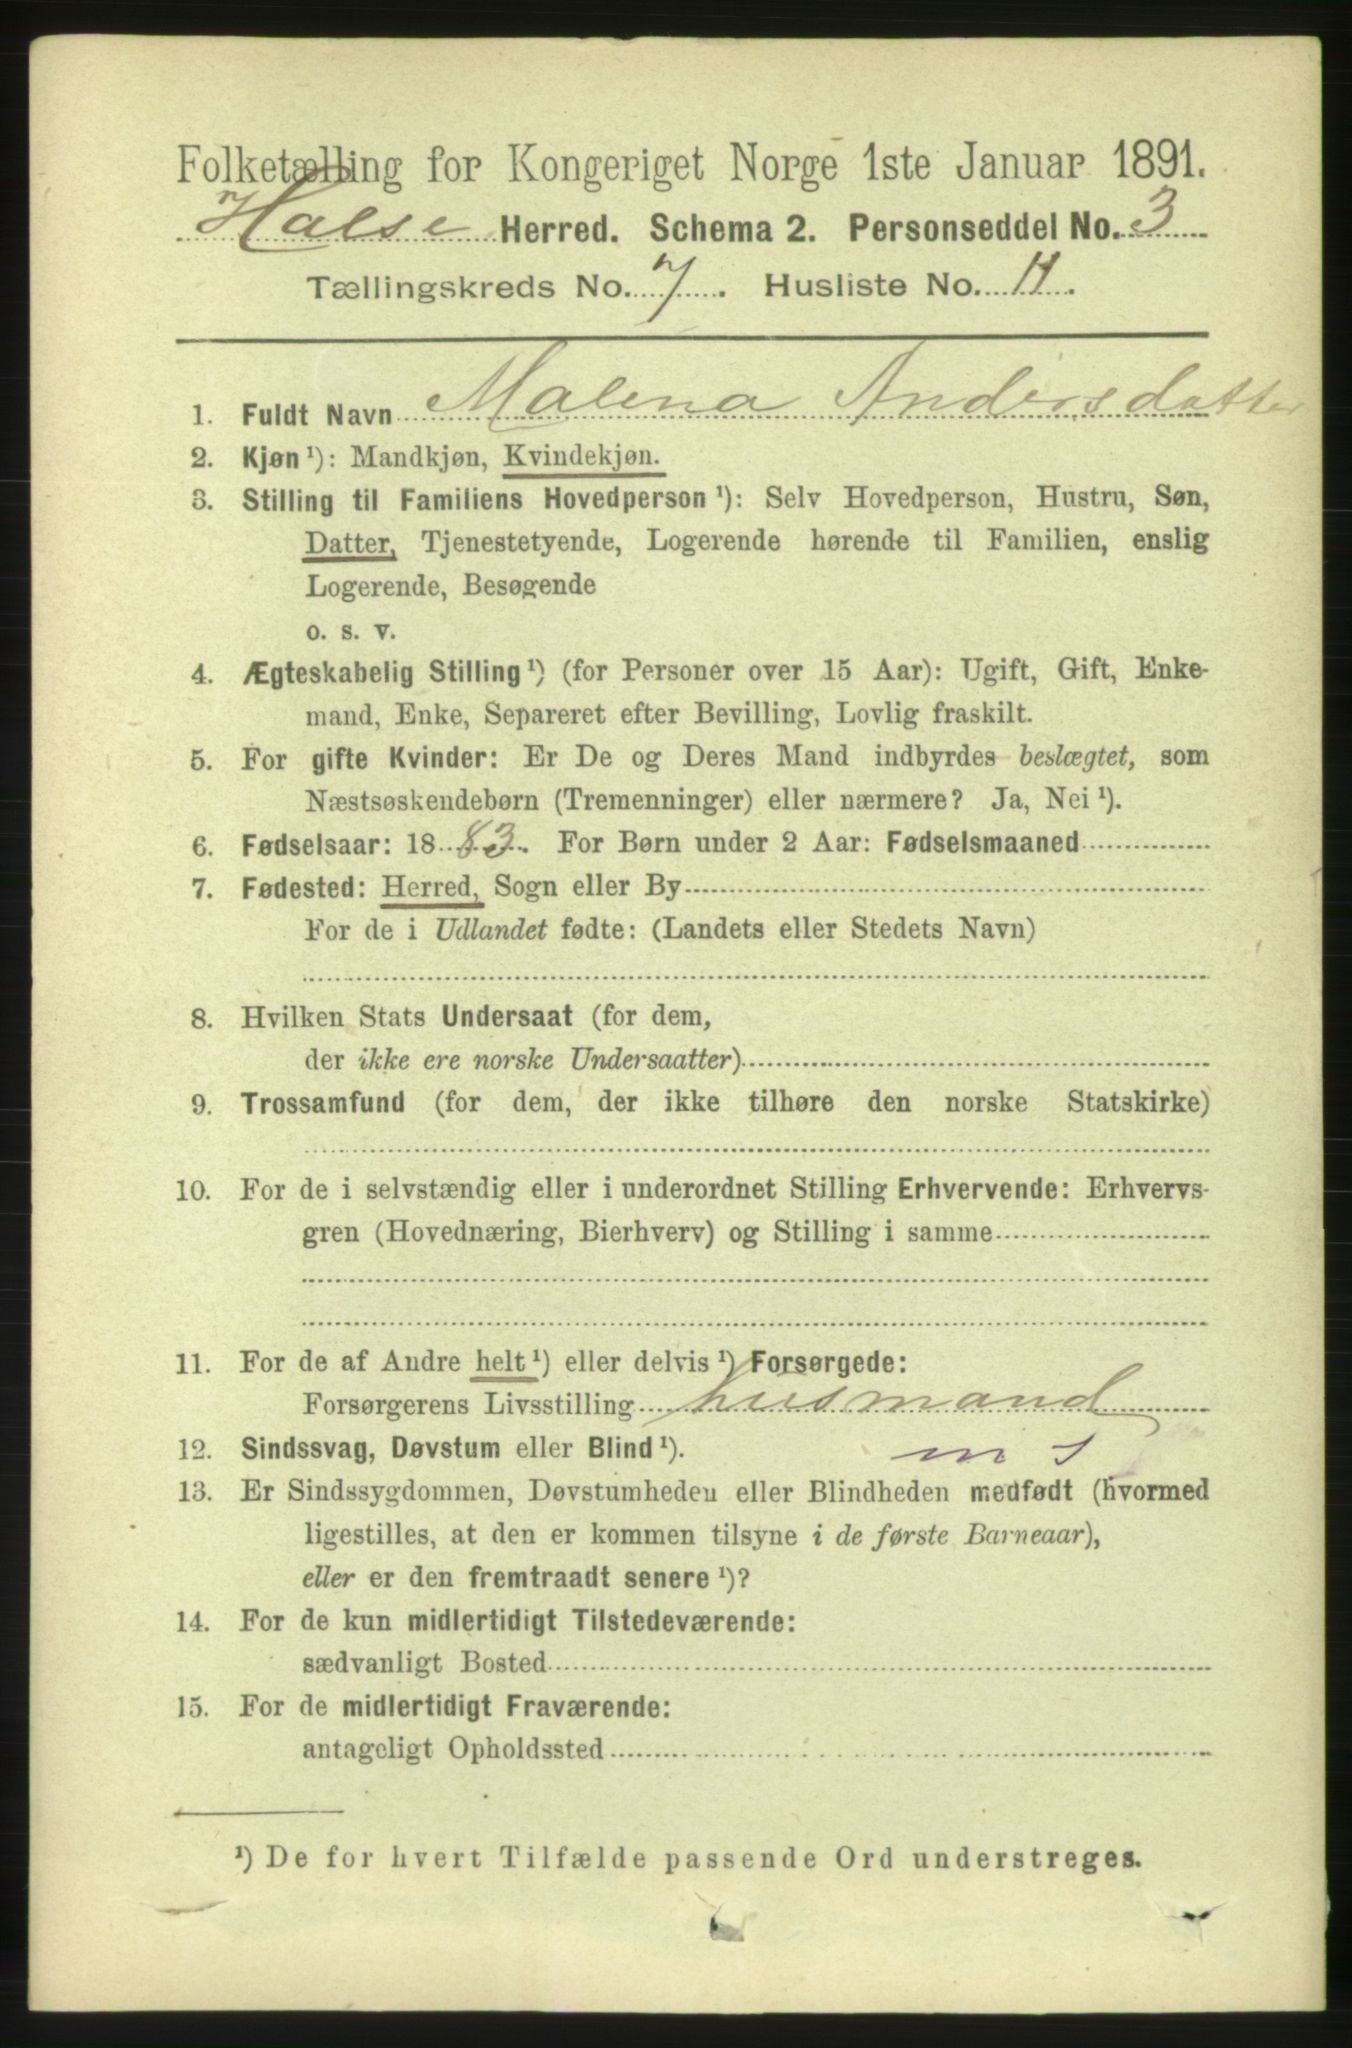 Folketælling for Kongeriget Norge 1ste Januar 1891.
Halse Herred. Schema 2. Personseddel No. 3
Tællingskreds No. 7. Husliste No. 11.
1. Fuldt Navn Malena Andersdatter
2. Kjøn ¹): Mandkjøn, Kvindekjøn.
3. Stilling til Familiens Hovedperson ¹): Selv Hovedperson, Hustru, Søn,
Datter, Tjenestetyende, Logerende hørende til Familien, enslig
Logerende, Besøgende
o. s. v.
4. Ægteskabelig Stilling ¹) (for Personer over 15 Aar): Ugift, Gift, Enke-
mand, Enke, Separeret efter Bevilling, Lovlig fraskilt.
5. For gifte Kvinder: Er De og Deres Mand indbyrdes beslægtet, som
Næstsøskendebørn (Tremenninger) eller nærmere? Ja, Nei ¹).
6. Fødselsaar: 1883. For Børn under 2 Aar: Fødselsmaaned
7. Fødested: Herred, Sogn eller By
For de i Udlandet fødte: (Landets eller Stedets Navn)
8. Hvilken Stats Undersaat (for dem,
der ikke ere norske Undersaatter)
9. Trossamfund (for dem, der ikke tilhøre den norske Statskirke)
10. For de i selvstændig eller i underordnet Stilling Erhvervende: Erhvervs-
gren (Hovednæring, Bierhverv) og Stilling i samme
11. For de af Andre helt ¹) eller delvis ¹) Forsørgede:
Forsørgerens Livsstilling husmand
12. Sindssvag, Døvstum eller Blind ¹). m s
13. Er Sindssygdommen, Døvstumheden eller Blindheden medfødt (hvormed
ligestilles, at den er kommen tilsyne i de første Barneaar),
eller er den fremtraadt senere ¹)?
14. For de kun midlertidigt Tilstedeværende:
sædvanligt Bosted
15. For de midlertidigt Fraværende:
antageligt Opholdssted
¹) De for hvert Tilfælde passende Ord understreges.